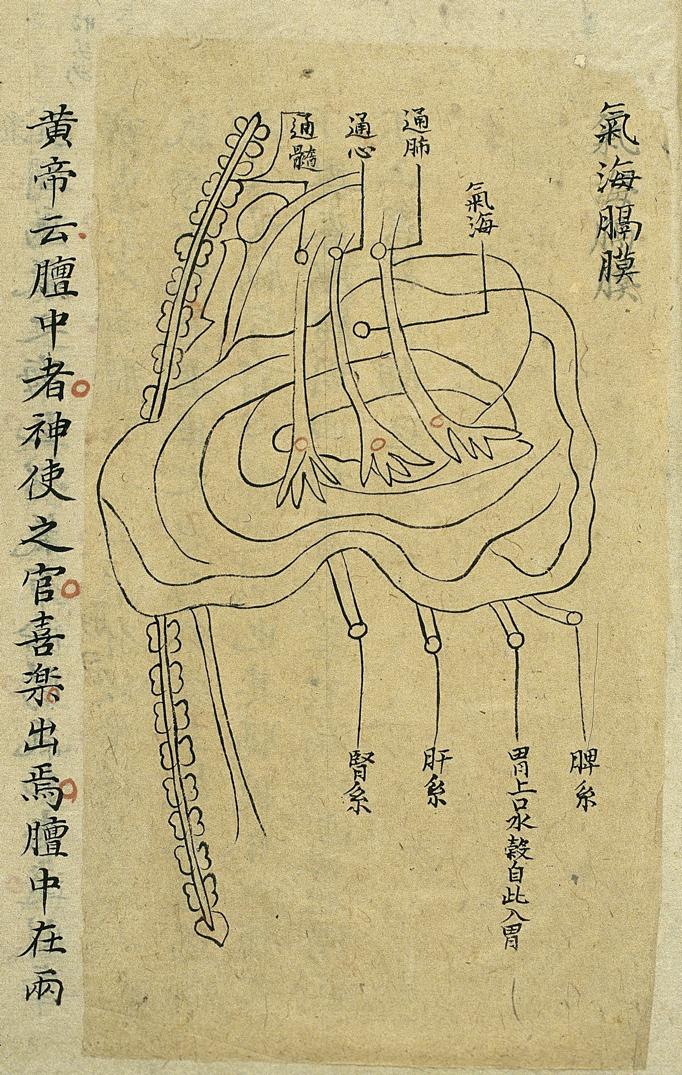 氣海膈膜
氣海
通肺
通心
通髓
脾系
胃上口水穀自此入胃
肝系
腎系
黄帝云膻中者神使之官喜楽出焉膻中在兩